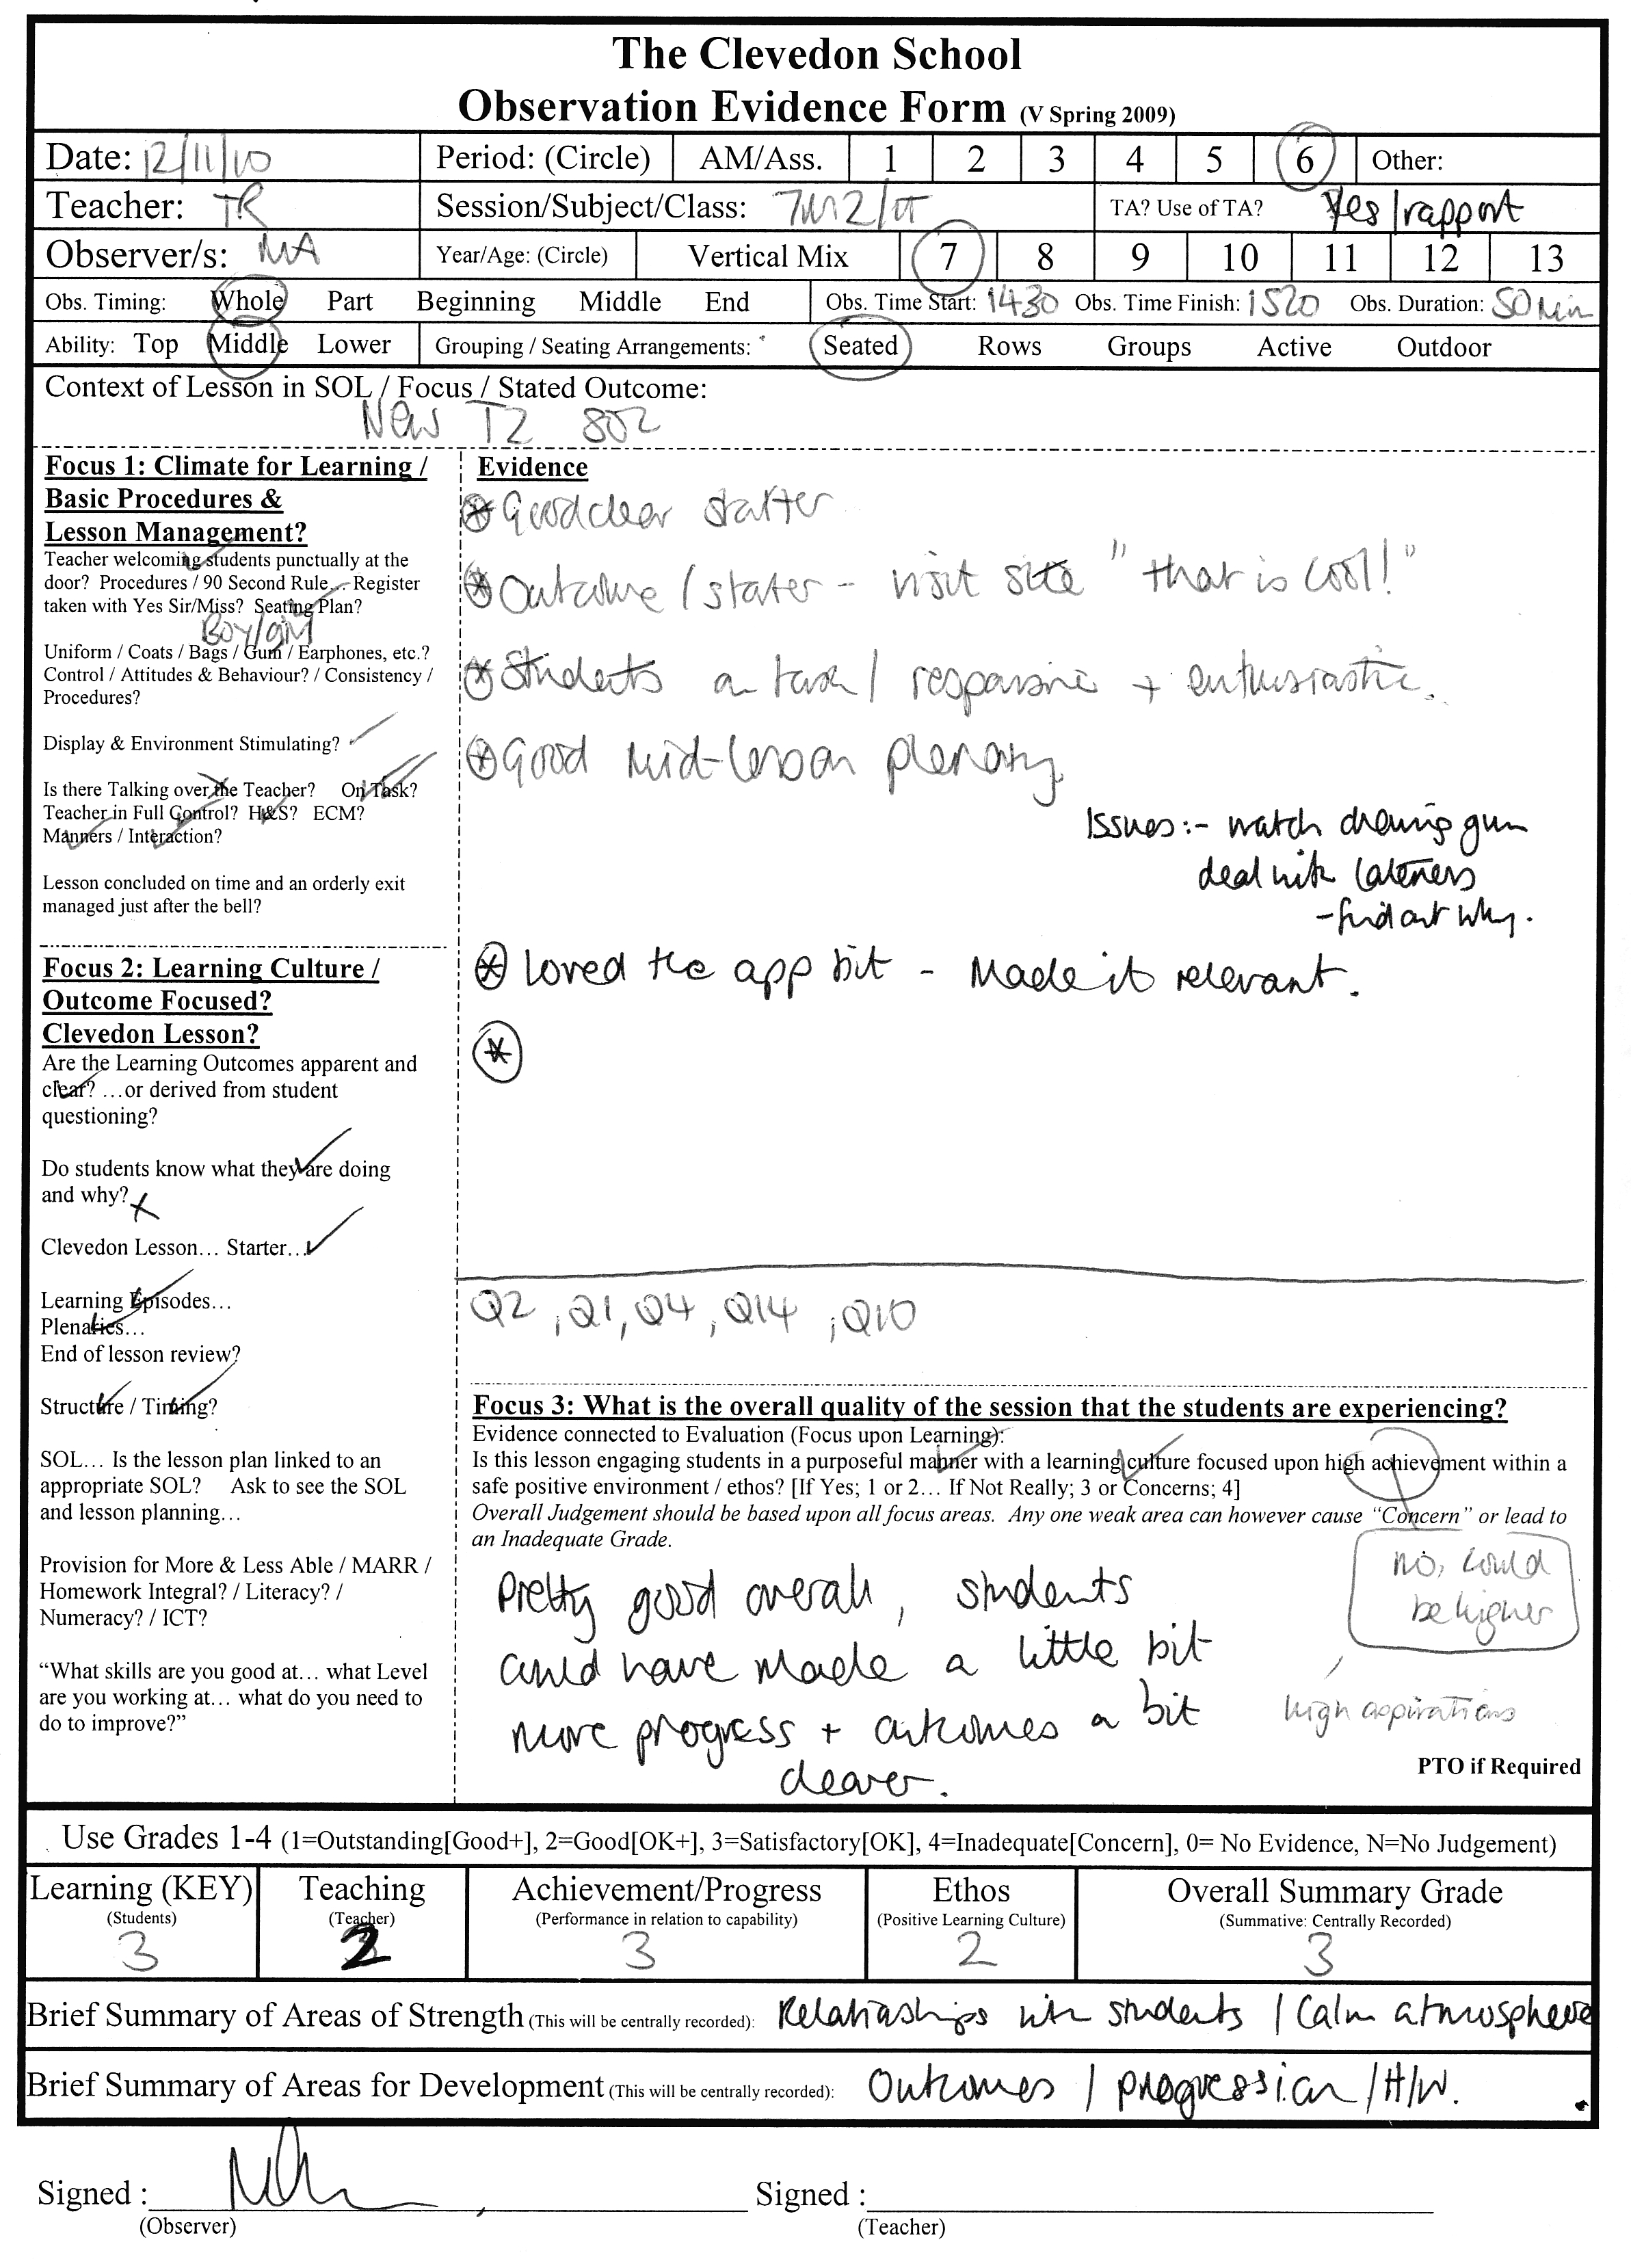 The Clevedon School
Observation Evidence Form (V Spring 2009)
Date: 12/11/10 Period: (Circle) AM/Ass. 1 2 3 4 5 6 Other:
Teacher: TR Session/Subject/Class: TA? Use of TA? Yes/rapport
Observer/s: MA Year/Age: (Circle) Vertical Mix 7 8 9 10 11 12 13
Obs. Timing: Whole Part Beginning Middle End Obs. Time Start: 1430 Obs. Time Finish: 1520 Obs. Duration: 50 min
Ability: Top Middle Lower Grouping / Seating Arrangements: Seated Rows Groups Active Outdoor
Context of Lesson in SOL / Focus / Stated Outcome:
New T2
Focus 1: Climate for Learning /
Basic Procedures &
Lesson Management?
Teacher welcoming students punctually at the
door? Procedures / 90 Second Rule... Register
taken with Yes Sir/Miss? Seating Plan?
Boy/girl
Uniform / Coats / Bags / Gum / Earphones, etc.?
Control / Attitudes & Behaviour? / Consistency /
Procedures?
Display & Environment Stimulating?
Is there Talking over the Teacher? On Task?
Teacher in Full Control? H&S? ECM?
Manners / Interaction?
Lesson concluded on time and an orderly exit
managed just after the bell?
Focus 2: Learning Culture /
Outcome Focused?
Clevedon Lesson?
Are the Learning Outcomes apparent and
clear? ...or derived from student
questioning?
Do students know what they are doing
and why?
Clevedon Lesson... Starter...
Learning Episodes...
Plenaries...
End of lesson review?
Structure / Timing?
SOL... Is the lesson plan linked to an
appropriate SOL? Ask to see the SOL
and lesson planning...
Provision for More & Less Able / MARR /
Homework Integral? / Literacy? /
Numeracy? / ICT?
“What skills are you good at... what Level
are you working at... what do you need to
do to improve?”
Evidence
* Good clear starter
* Outcome / stater - visit site "that is cool!"
* Students on task / responsive + enthusiastic.
* Good mid-lesson plenary
Issues:- watch chewing gum
deal with lateness
- find out why.
* Loved the app bit - Made it relevant.
*
Q2, Q1, Q4, Q14, Q10
Focus 3: What is the overall quality of the session that the students are experiencing?
Evidence connected to Evaluation (Focus upon Learning):
Is this lesson engaging students in a purposeful manner with a learning culture focused upon high achievement within a
safe positive environment / ethos? [If Yes; 1 or 2... If Not Really; 3 or Concerns; 4]
Overall Judgement should be based upon all focus areas. Any one weak area can however cause “Concern” or lead to
an Inadequate Grade.
no, could
be higher
high aspirations
Pretty good overall, students
could have made a little bit
more progress + outcomes a bit
clearer.
PTO if Required
Use Grades 1-4 (1=Outstanding[Good+], 2=Good[OK+], 3=Satisfactory[OK], 4=Inadequate[Concern], 0= No Evidence, N=No Judgement)
Learning (KEY) Teaching Achievement/Progress Ethos Overall Summary Grade
(Students) (Teacher) (Performance in relation to capability) (Positive Learning Culture) (Summative: Centrally Recorded)
3 2 3 2 3
Brief Summary of Areas of Strength (This will be centrally recorded): Relationships with students / Calm atmosphere
Brief Summary of Areas for Development (This will be centrally recorded): Outcomes / progression / H/W.
Signed : Signed :
(Observer) (Teacher)